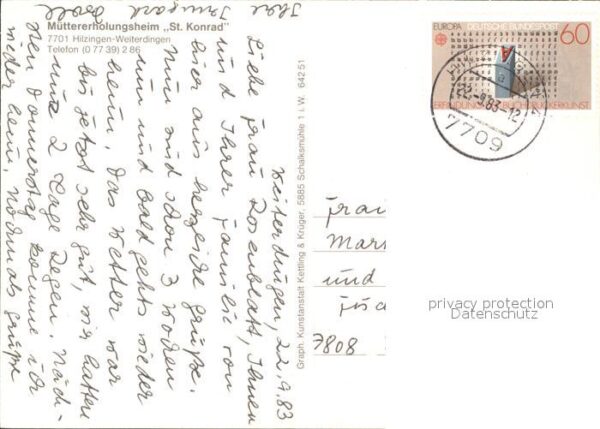 Müttererholungsheim „St. Konrad"
7701 Hilzingen-Weiterdingen
Telefon (0 77 39) 2 86
Weiterdingen, 22.9.83
Liebe Frau Rosenblatt, Ihnen
und Ihrer Familie von
hier aus herzliche Grüße.
Nun sind schon 3 Wochen
um und bald gehts wieder
heim, das Wetter war
bis jetzt sehr gut, wir hatten
nur 2 Tage Regen. Näch-
sten Donnerstag komme ich
wieder heim. Nochmals Grüße
Ihre
Irmgard
Graph. Kunstanstalt Kettling & Krüger, 5885 Schalksmühle 1 i. W. 64251
EUROPA
DEUTSCHE BUNDESPOST
60
ERFINDUNG BUCHDRUCKERKUNST
22.-9.83-12
7709
Mars
und
7808
privacy protection
Datenschutz